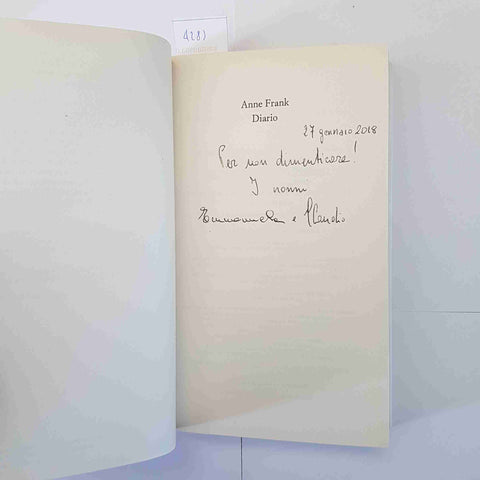 428)
Anne Frank
Diario
27 gennaio 2018
Per non dimenticare!
I nonni
Emmanuela e Claudio